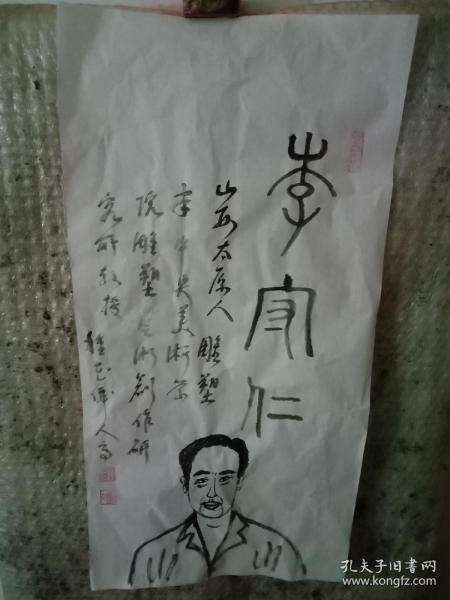 李守仁
山西太原人 雕塑
家中央美术学
院雕塑艺术创作研
究所教授
孔夫子旧书网
www.kongfz.com